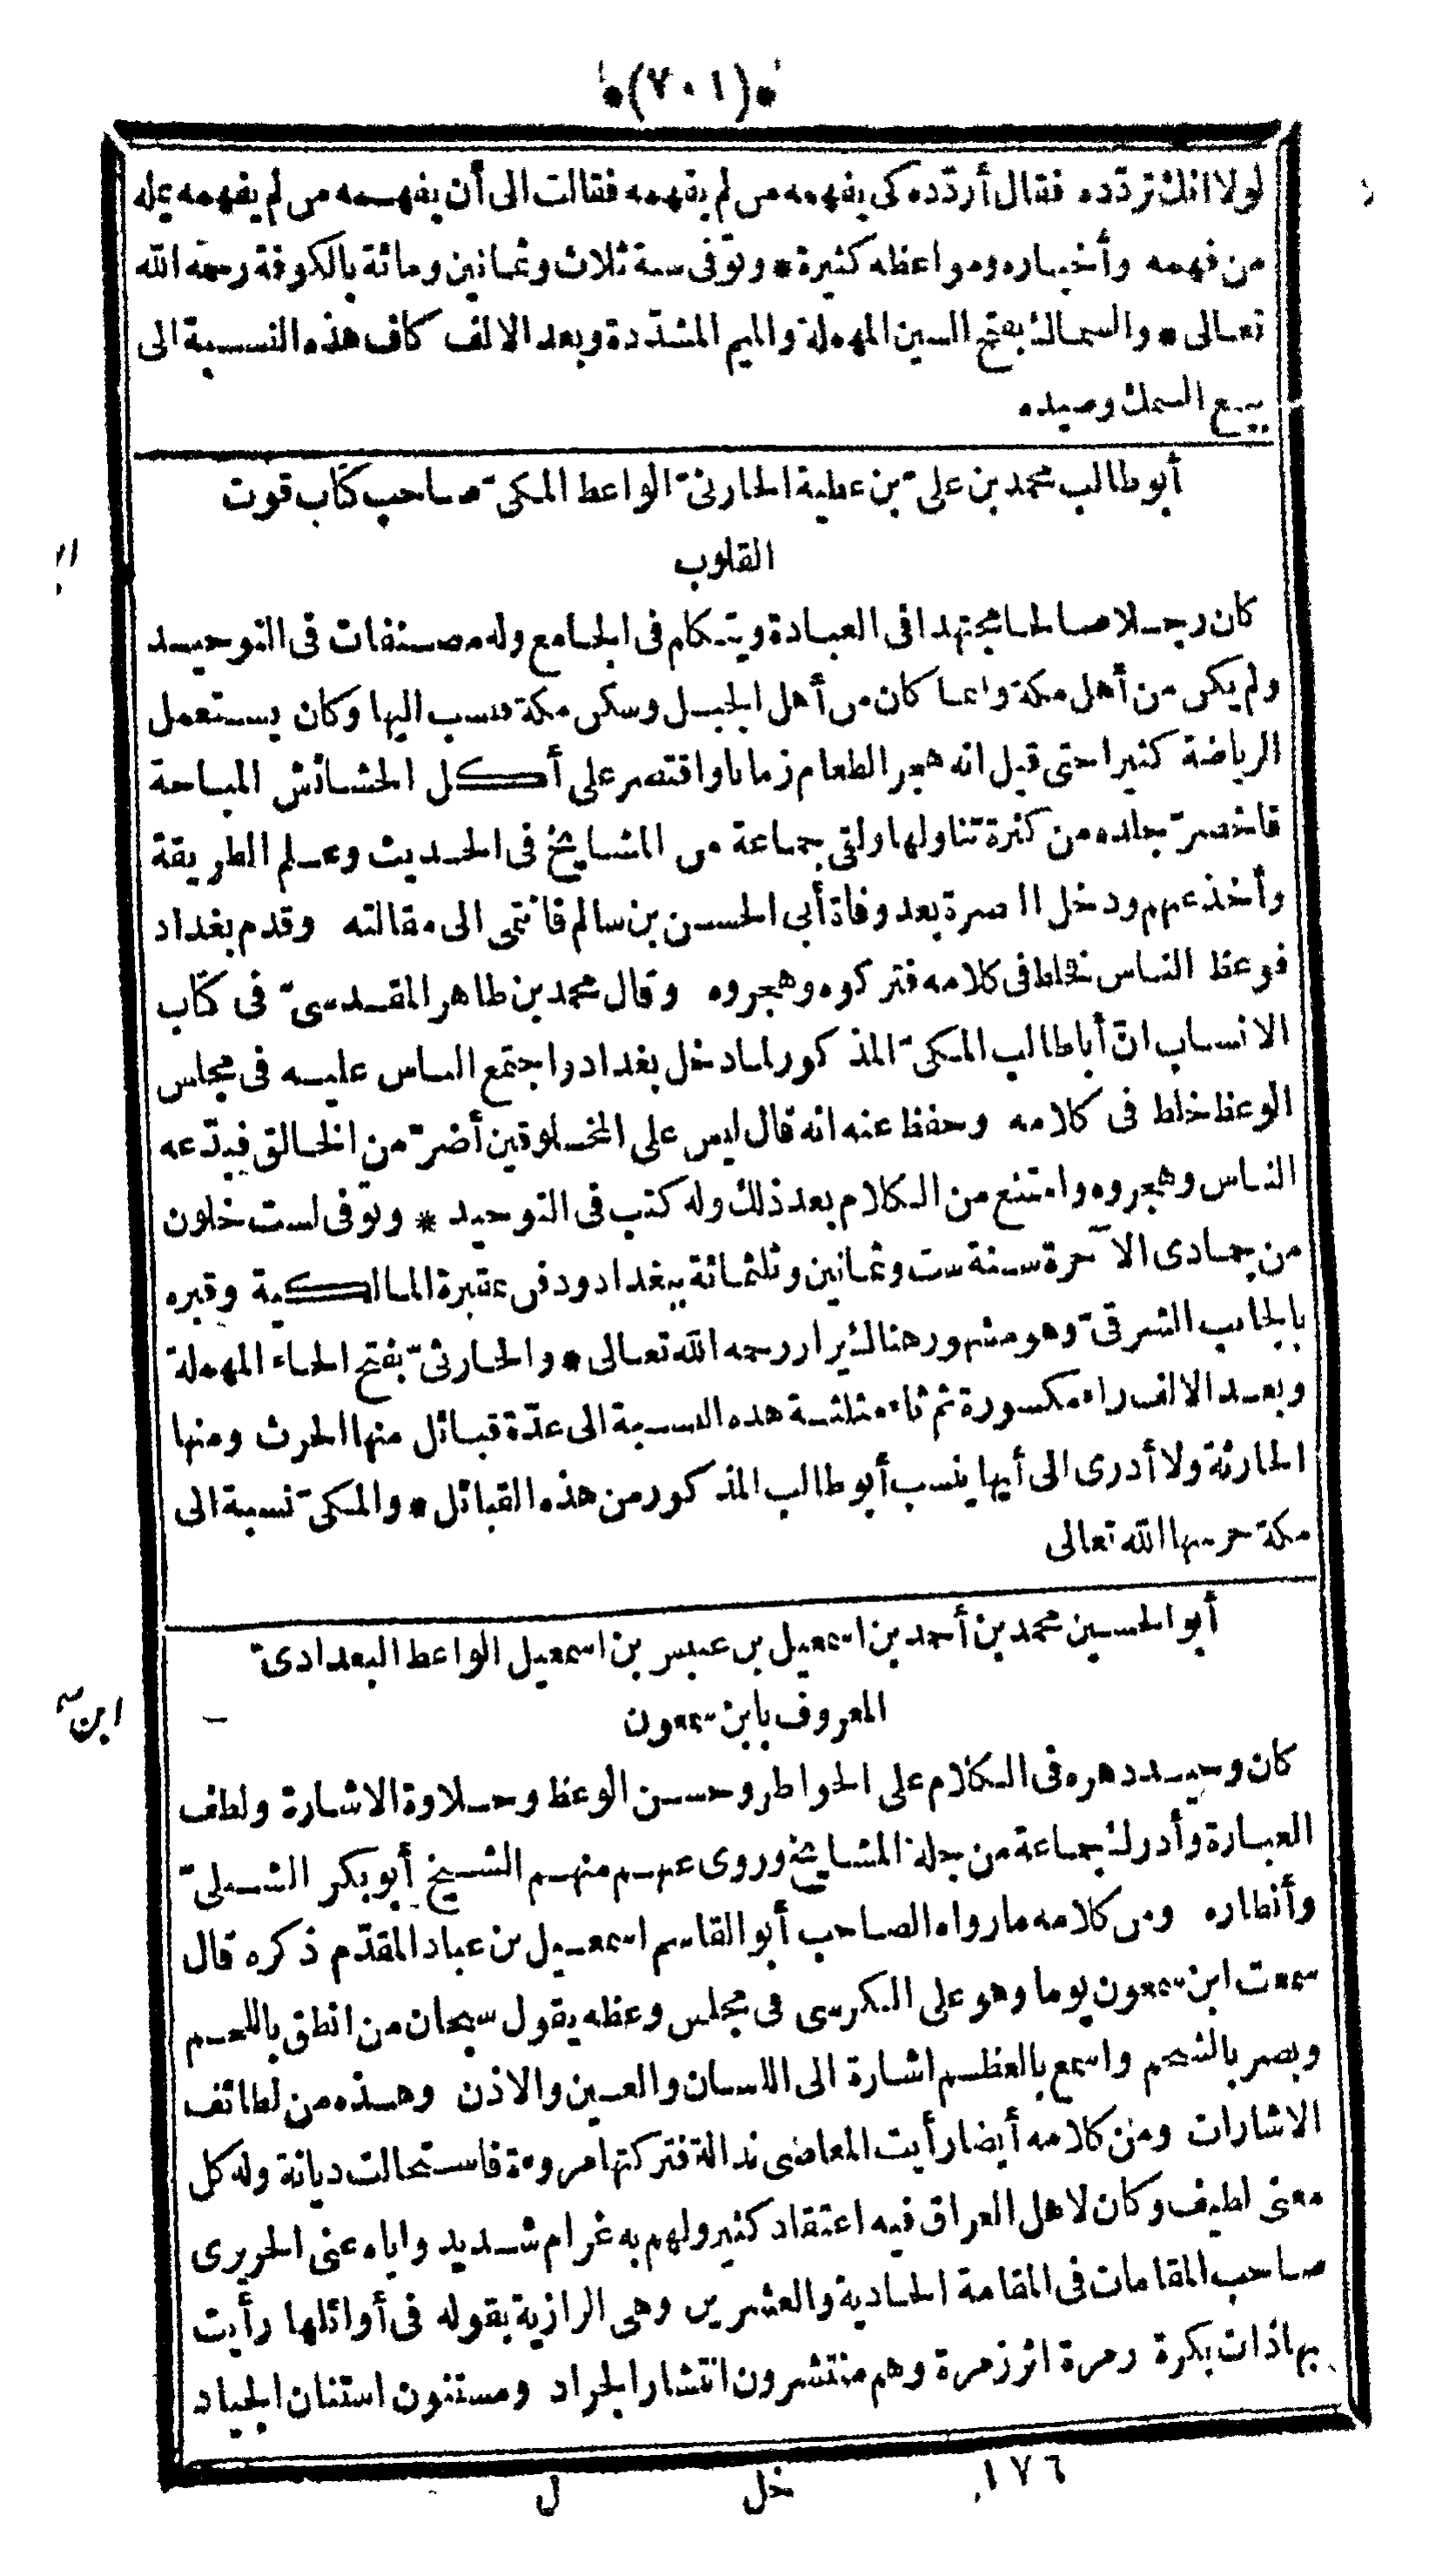 (٧٠١)
لولا انك تردّده فقال أردّده كى يفهمه من لم يفهمه فقالت الى أن يفهمه من لم يفهمه يمله
من فهمه وأخباره ومواعظه كثيرة * وتوفى سنة ثلاث وثمانين ومائة بالكوفة رحمه الله
تعالى * والسماك بفتح السين المهملة والميم المشدّدة وبعد الالف كاف هذه النسبة الى
بيع السمك وصيده
أبو طالب محمد بن علىّ بن عطية الحارثىّ الواعظ المكىّ صاحب كتاب قوت
القلوب
كان رجلا صالحا مجتهدا فى العبادة ويتكلم فى الجامع وله مصنفات فى التوحيد
ولم يكن من أهل مكة وانما كان من أهل الجبل وسكن مكة فنسب اليها وكان يستعمل
الرياضة كثيرا حتى قيل انه هجر الطعام زمانا واقتصر على أكل الحشائش المباحة
فاخضرّ جلده من كثرة تناولها ولقى جماعة من المشايخ فى الحديث وعلم الطريقة
وأخذ عنهم ودخل البصرة بعد وفاة أبى الحسن بن سالم فانتمى الى مقالته وقدم بغداد
فوعظ الناس فخلط فى كلامه فتركوه وهجروه وقال محمد بن طاهر المقدسىّ فى كتاب
الانساب انّ أبا طالب المكىّ المذكور لما دخل بغداد واجتمع الناس عليه فى مجلس
الوعظ خلط فى كلامه وحفظ عنه انه قال ليس على المخلوقين أضرّ من الخالق فبدّعه
الناس وهجروه وامتنع من الكلام بعد ذلك وله كتب فى التوحيد * وتوفى لست خلون
من جمادى الآخرة سنة ست وثمانين وثلثمائة ببغداد ودفن بمقبرة المالكية وقبره
بالجانب الشرقىّ وهو مشهور هنالك يزار رحمه الله تعالى * والحارثىّ بفتح الحاء المهملة
وبعد الالف راء مكسورة ثم ثاء مثلثة هذه النسبة الى عدّة قبائل منها الحرث ومنها
الحارثة ولا أدرى الى أيها ينسب أبو طالب المذكور من هذه القبائل * والمكىّ نسبة الى
مكة حرسها الله تعالى
أبو الحسين محمد بن أحمد بن اسمعيل بن عبيس بن اسمعيل الواعظ البغدادىّ
المعروف بابن سمعون
ابن
كان وحيد دهره فى الكلام على الخواطر وحسن الوعظ وحلاوة الاشارة ولطف
العبارة وأدرك جماعة من جلة المشايخ وروى عنهم منهم الشيخ أبو بكر الشبلىّ
وأنظاره ومن كلامه ما رواه الصاحب أبو القاسم اسمعيل بن عباد المقدّم ذكره قال
سمعت ابن سمعون يوما وهو على الكرسى فى مجلس وعظه يقول سبحان من انطق باللحم
وبصر بالشحم واسمع بالعظم اشارة الى اللسان والعين والاذن وهذه من لطائف
الاشارات ومن كلامه أيضا رأيت المعاصى نذالة فتركتها مروءة فاستحالت ديانة وله كل
معنى لطيف وكان لاهل العراق فيه اعتقاد كثير ولهم به غرام شديد واياه عنى الحريرى
صاحب المقامات فى المقامة الحادية والعشرين وهى الرازية بقوله فى أوائلها رأيت
بها ذات بكرة زمرة اثر زمرة وهم منتشرون انتشار الجراد ومستنون استنان الجياد
١٧٦ خل ل